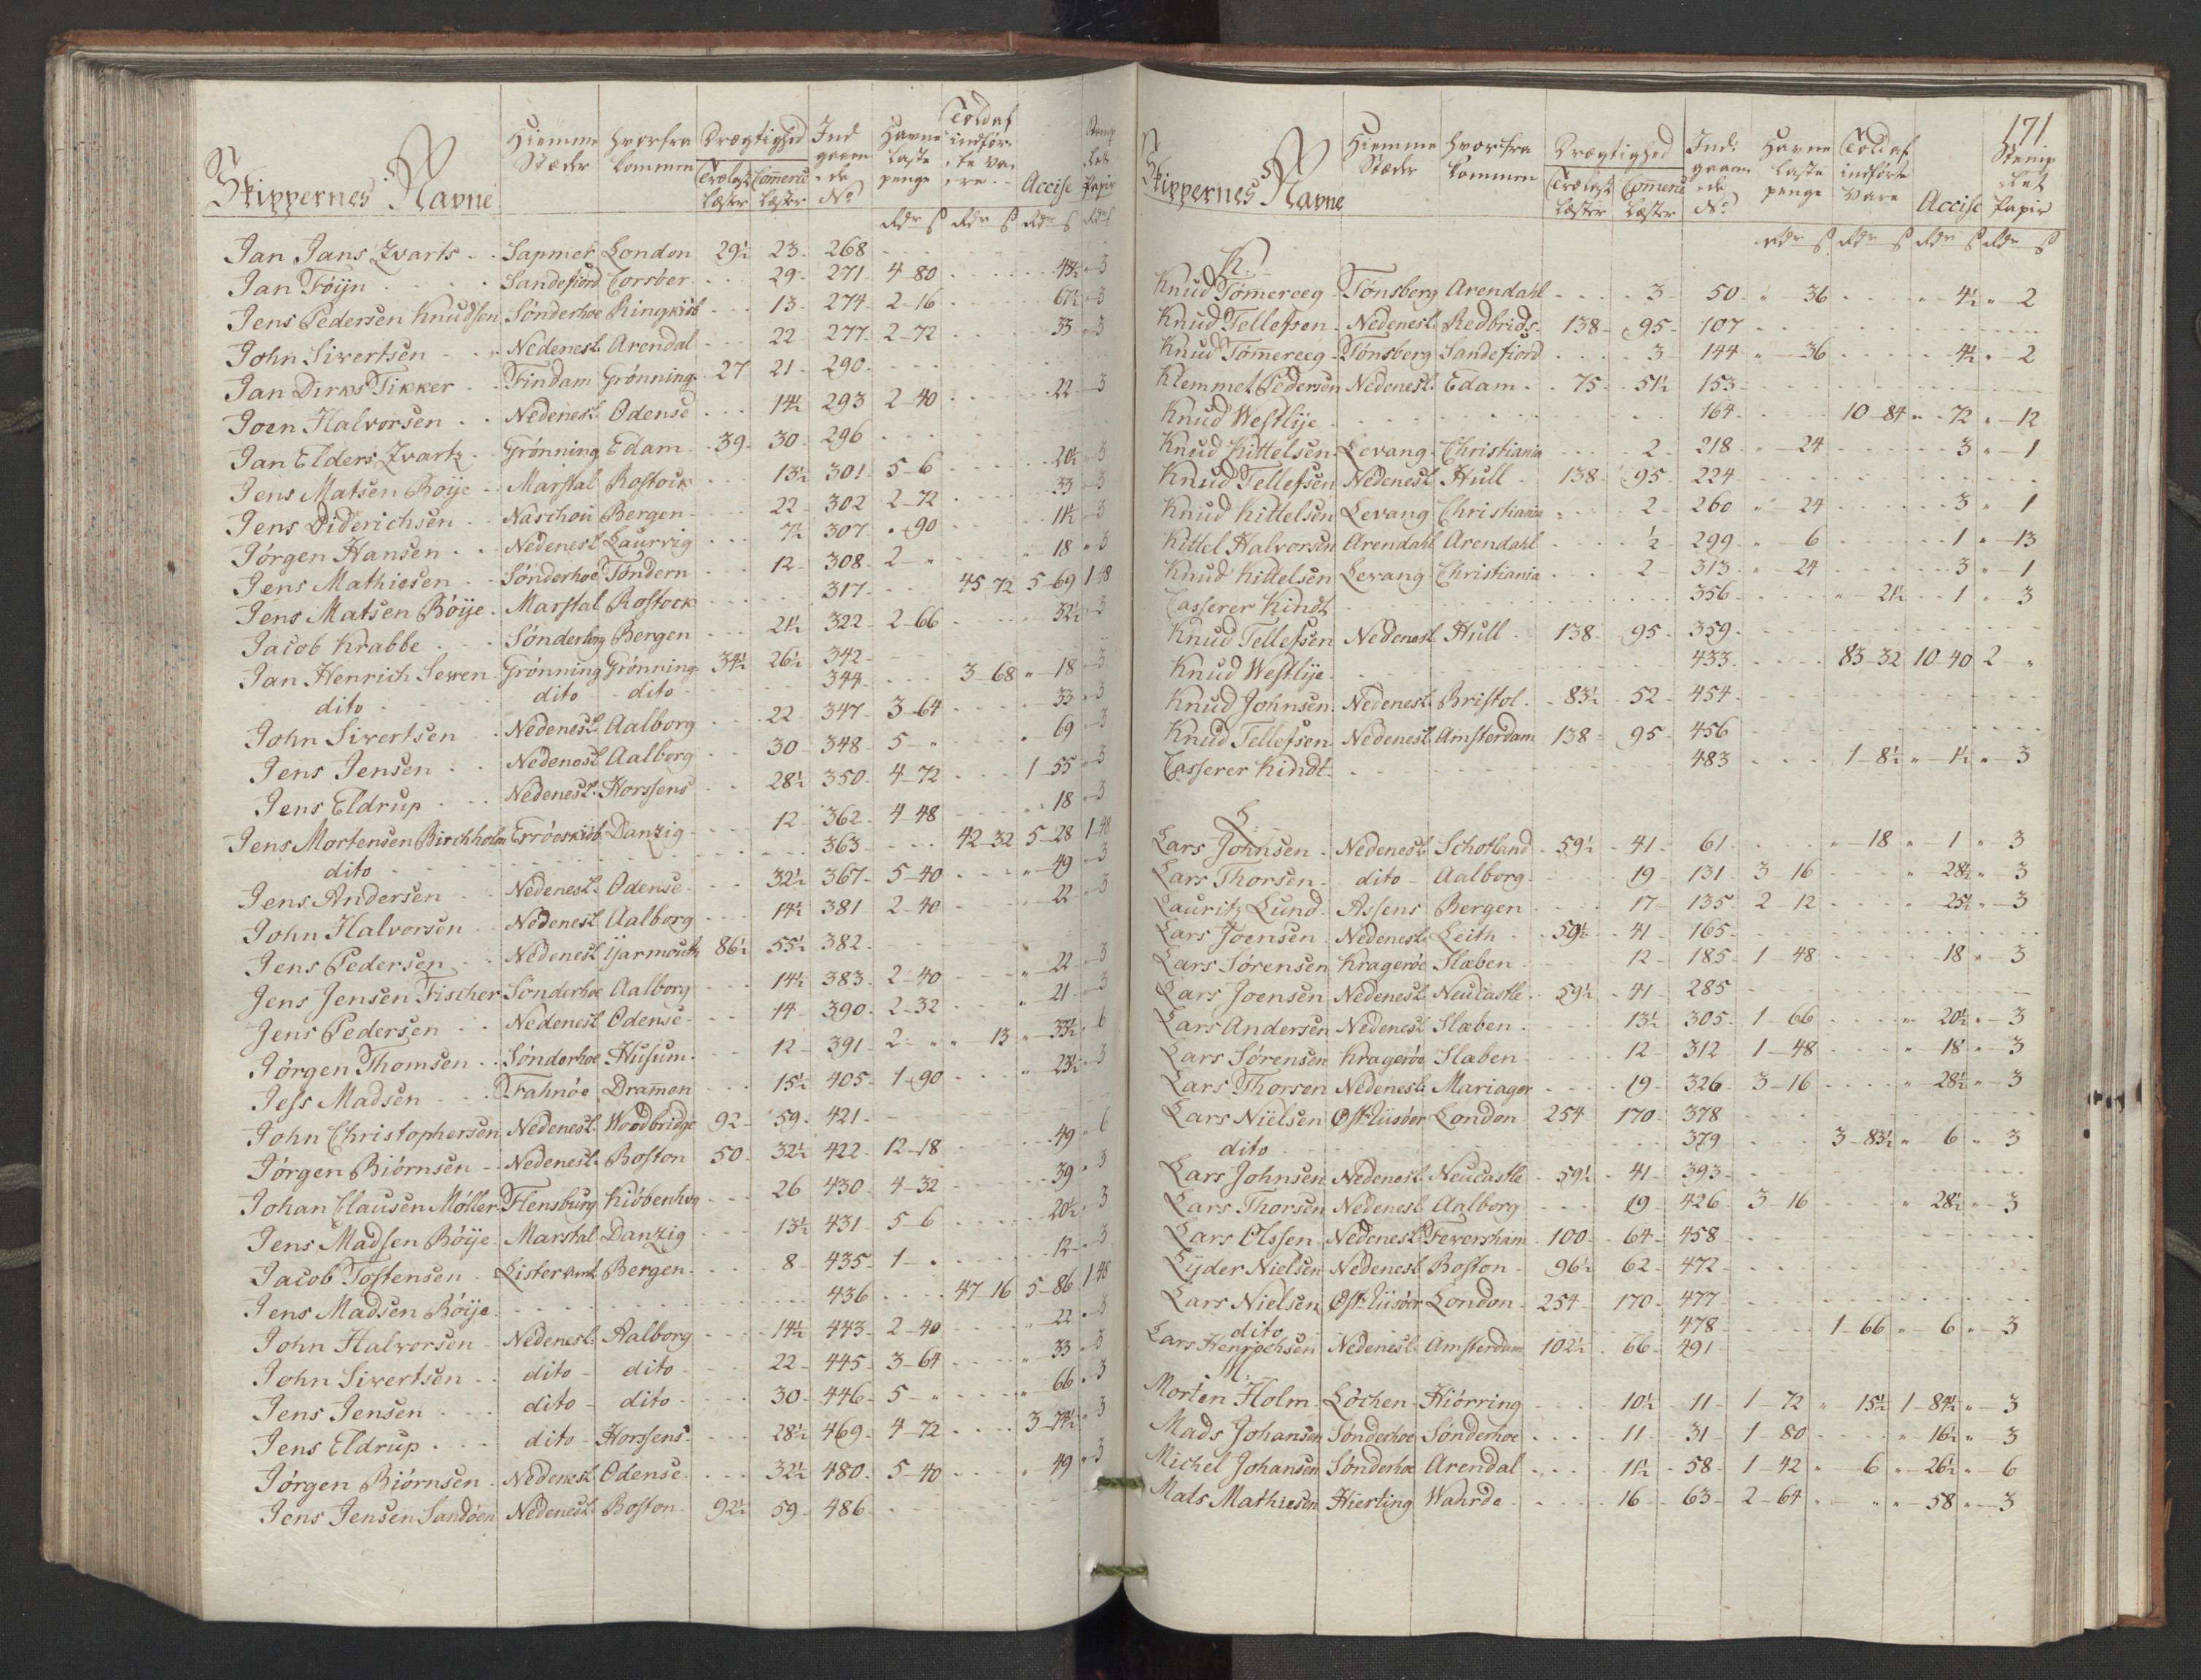 Skippernes Navne | Hiemme Stæder | hvorfra kommen | Drægtighed Trælast Læster | Com̄erce Læster | Ind gaaen de No | Havne Laste penge | Told af indfør te Va re | Accise | Stemp let Papir
Rdr ß Rdr ß Rdr ß Rdr ß
Jan Jans Zvarts Sapmer London 29½ 23 268
Jan Föyn Sandefiord Corsöer 29 271 4-80 43½ 3
Jens Pedersen Knudsen Sönderhoe Ringkiöb 13 274 2-16 67½ 3
John Sivertsen Nedenesl. Arendal 22 277 2-72 33 3
Jan Dirks Tikker Findam Grönning 27 21 290
Joen Halvorsen Nedenesl. Odense 14½ 293 2-40 22 3
Jan Elders Zvartz Grönning Edam 39 30 296
Jens Matsen Böye Marstal Rostock 13½ 301 5-6 20½ 3
Jens Diderichsen Naschou Bergen 22 302 2-72 33 3
Jörgen Hansen Nedenesl Laurvig 7½ 307 " 90 11½ 3
Jens Mathiesen Sönderhoe Töndern 12 308 2 " 18 " 3
Jens Matsen Böye Marstal Rostock 317 45-72 5-69 1-48
Jacob Krabbe Sönderhoe Bergen 21½ 322 2-66 32½ 3
Jan Henrich Seven Grönning Grönning 34½ 26½ 342
dito dito dito 344 3-68 " 18 3
John Sivertsen Nedenesl. Aalborg 22 347 3-64 33 " 3
Jens Jensen Nedenesl Aalborg 30 348 5 " " 69 3
Jens Eldrup Nedenesl. Horssens 28½ 350 4-72 1-55 3
Jens Mortensen Birchholm Erröeskiöb Danzig 12 362 4-48 " 18 3
dito 363 42-32 5-28 1-48
Jens Andersen Nedenesl. Odense 32½ 367 5-40 " 49 3
John Halvorsen Nedenesl Aalborg 14½ 381 2-40 22 3
Jens Pedersen Nedenesl Yarmouth 86½ 55½ 382
Jens Jensen Fischer Sönderhoe Aalborg 14½ 383 2-40 " 22 3
Jens Pedersen Nedenesl Odense 14 390 2-32 " 21 3
Jörgen Thomsen Sönderhoe Husum 12 391 2 " " 13 " 33½ 6
Jess Madsen Fahnöe Dram̄en 15½ 405 1-90 " 23½ 3
John Christophersen Nedenesl. Woodbridge 92 59 421
Jörgen Biörnsen Nedenesl. Boston 50 32½ 422 12-18 49 6
Johan Clausen Möller Flensburg Kiöbenhvg 26 430 4-32 39 " 3
Jens Madsen Böye Marstal Danzig 13½ 431 5-6 20½ 3
Jacob Tostensen Lister Amt Bergen 8 435 1 " 12 3
Jens Madsen Böye 436 47-16 5-86 1-48
John Halvorsen Nedenesl. Aalborg 14½ 443 2-40 " 22 3
John Sivertsen dito dito 22 445 3-64 " 33 " 3
Jens Jensen dito dito 30 446 5 " " 66 3
Jens Eldrup dito Horssens 28½ 469 4-72 3-74½ 3
Jörgen Biörnsen Nedenesl. Odense 32½ 480 5-40 " 49 " 3
Jens Jensen Sandöen Nedenesl. Boston 92½ 59 486
171
Skippernes Navne | Hiemme Stæder | hvorfra kommen | Drægtighed Trælast Læster | Com̄erce Læster | Ind: gaaen de No | Havne Laste penge | Told af indförte Vare | Accise | Stemp let Papir
Rdr ß Rdr ß Rdr ß Rdr ß
K.
Knud Töm̄ereeg Tönsberg Arendahl 3 50 " 36 " 4½ " 2
Knud Tellefsen Nedenesl. Redbrids 138 95 107
Knud Töm̄ereeg Tönsberg Sandefiord 3 144 " 36 4½ " 2
Klemmet Pedersen Nedenesl. Edam 75 51½ 153
Knud Westlye 164 10-84 " 72 " 12
Knud Kittelsen Levang Christiania 2 218 " 24 3 " 1
Knud Tellefsen Nedenesl. Hull 138 95 224
Knud Kittelsen Levang Christiania 2 260 " 24 3 " 1
Kittel Halvorsen Arendahl Arendahl ½ 299 " 6 1 " 13
Knud Kittelsen Levang Christiania 2 313 " 24 3 " 1
Casserer Kindt 356 " 21½ 1 " 3
Knud Tellefsen Nedenesl Hull 138 95 359
Knud Westlye 433 83-32 10-40 2 "
Knud Johnsen Nedenesl. Bristol 83½ 52 454
Knud Tellefsen Nedenesl Amsterdam 138 95 456
Casserer Kindt 483 1-8½ " 1½ " 3
L.
Lars Johnsen Nedenesl. Schotland 59½ 41 61 " 18 " 1 " 3
Lars Thorsen dito Aalborg 19 131 3-16 " 28½ " 3
Lauritz Lund Assens Bergen 17 135 2-12 " 25½ " 3
Lars Joensen Nedenesl. Leith 59½ 41 165
Lars Sörensen Krageröe Slæben 12 185 1-48 18 " 3
Lars Joensen Nedenesl. Neucastle 59½ 41 285
Lars Andersen Nedenesl Slæben 13½ 305 1-66 " 20½ " 3
Lars Sörensen Krageröe Slæben 12 312 1-48 " 18 " 3
Lars Thorsen Nedenesl. Mariager 19 326 3-16 " 28½ " 3
Lars Nielsen Öst-Riisöer London 254 170 378
dito 379 3-83½ " 6 " 3
Lars Johnsen Nedenesl Neucastle 59½ 41 393
Lars Thorsen Nedenesl Aalborg 19 426 3 16 " 28½ " 3
Lars Olssen Nedenesl. Feversham 100 64 458
Lyder Nielsen Nedenesl Boston 96½ 62 472
Lars Nielsen Öst-Riisöer London 254 170 477
dito 478 1-66 " 6 " 3
Lars Henrochsen Nedenesl. Amsterdam 102½ 66 491
M.
Morten Holm Löchen Hiörring 10½ 11 1-72 " 15½ 1-84½ " 3
Mads Johansen Sönderhoe Sönderhoe 11 31 1-80 " 16½ " 3
Michel Johansen Sönderhoe Arendal 11½ 58 1-42 " 6 " 26½ " 6
Mats Mathiesen Hierting Wahrde 16 63 2-64 " " " 58 " 3